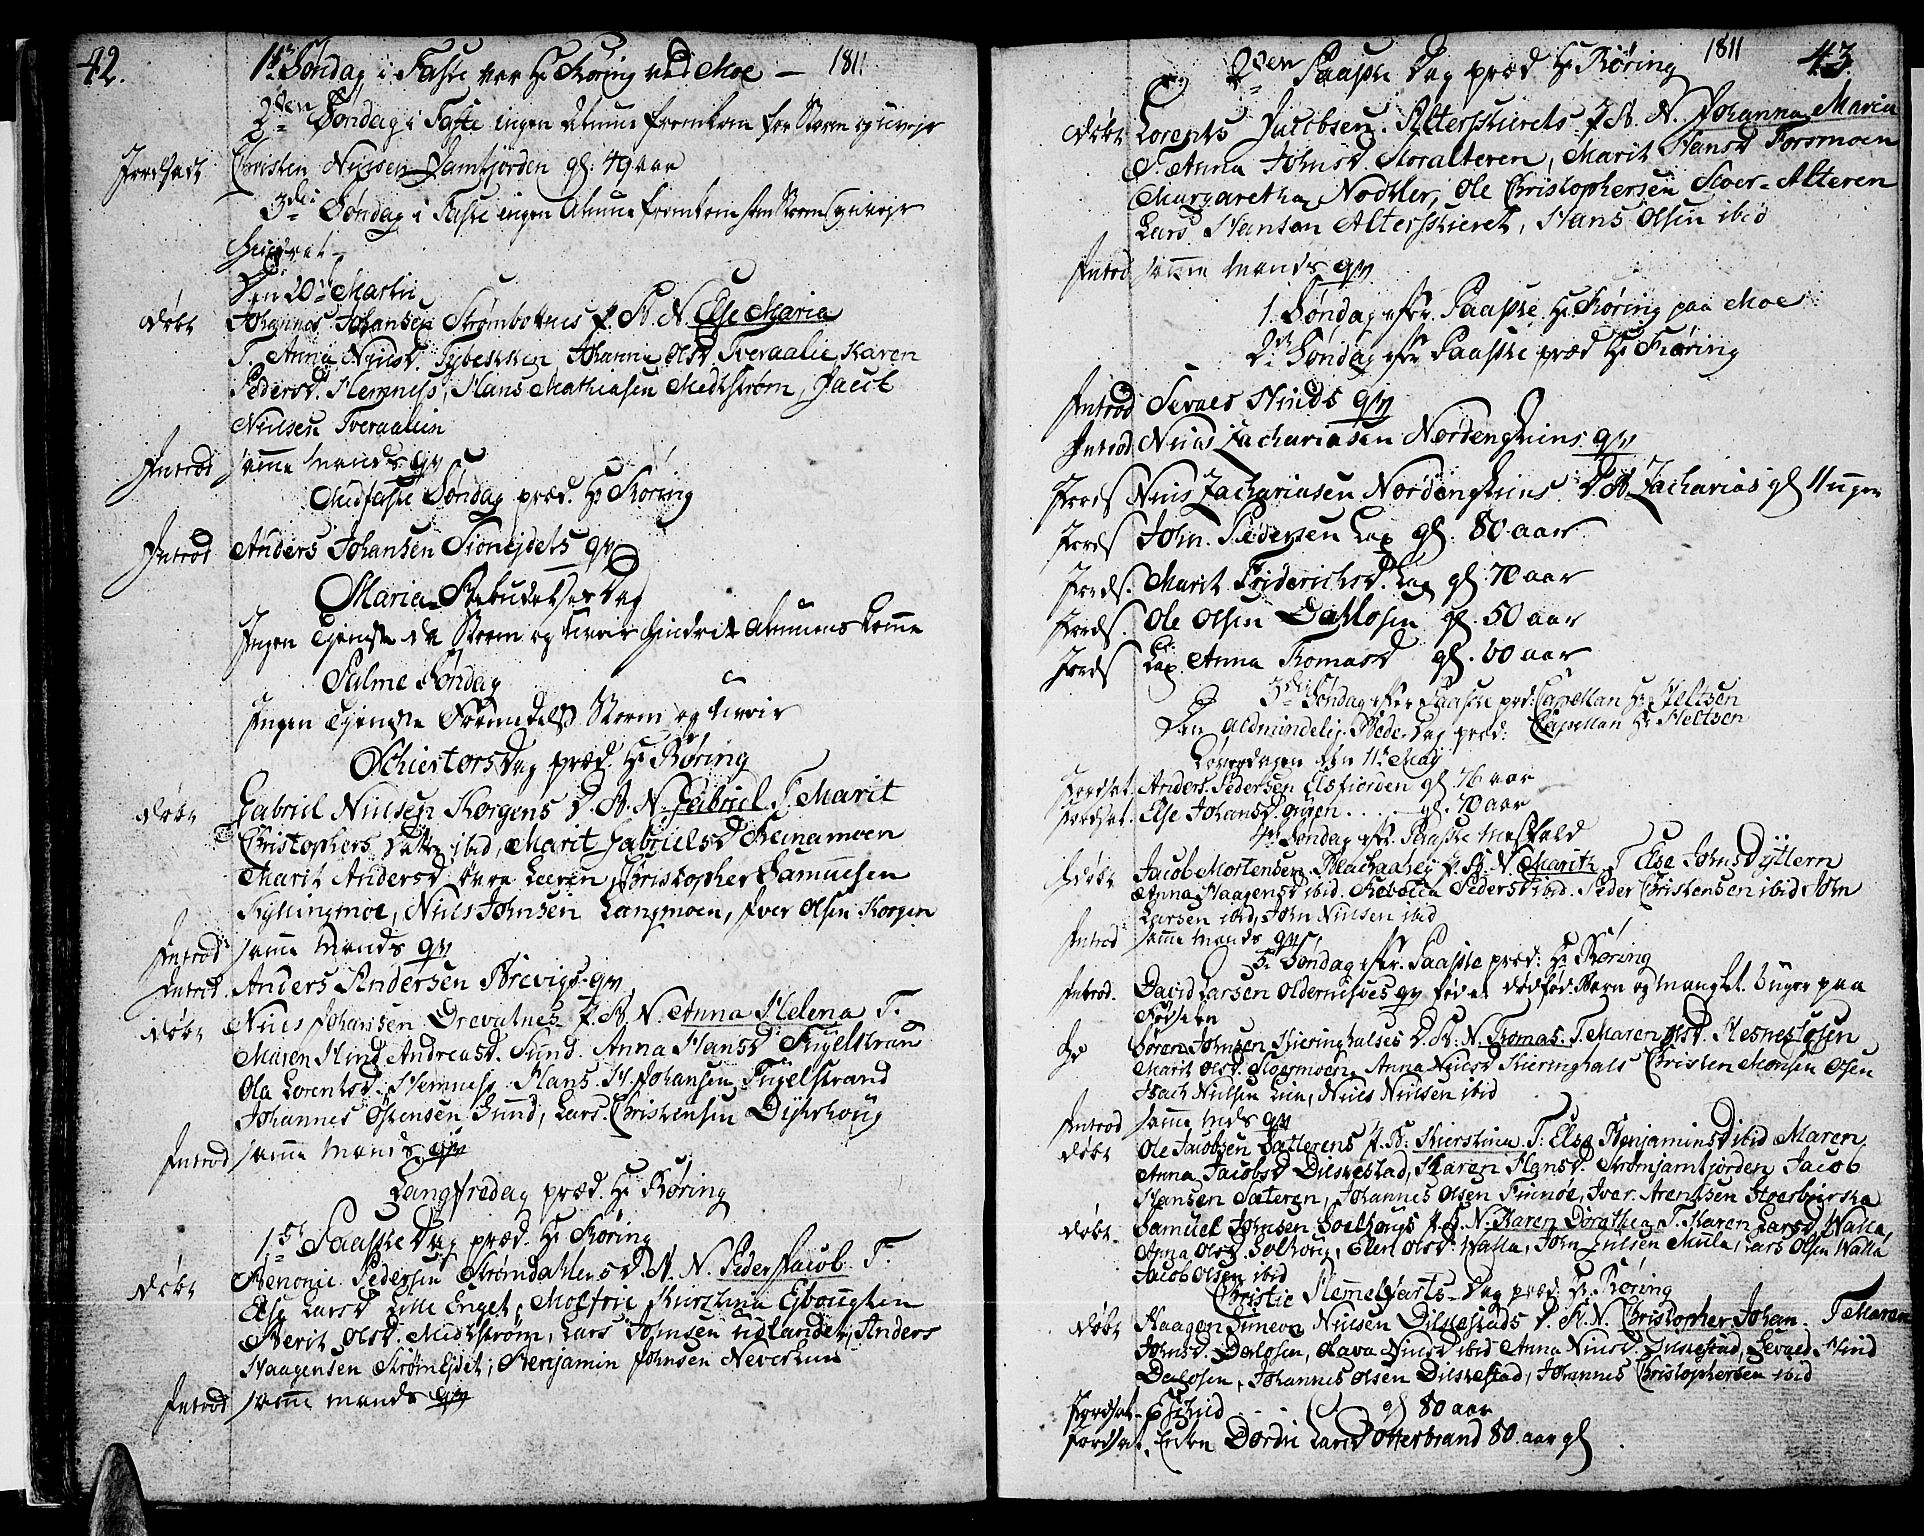 42.
1811
1ste Søndag i Faste var Hr Røring ved Moe —
2den Søndag i Faste ingen Almue fremkom for Storm og uvejr
Jordsadt Christen Nielsen Jamtjorden gl. 49 aar
3die Søndag i Faste ingen Almue fremkom
Den 20de Martii
Døbt Johannes Johansen Strømbotnes P. B. N. Else Maria
T. Anna Nielsd. Johanna Olsd Tveraalie Karen
Pedersd. Hemness, Hans Mathiasen Melkstrøm, Jacob
Nielsen Tveraalien
Introd samme Mands qv
Midfaste Søndag præd. Hr Røring
Introd Anders Johansen Sionejdets qv
Maria Bebudelses Dag
Ingen Tjeneste da Storm og uveir hindret Almuens komme
Palme Søndag
Ingen Tjeneste Formedelst Storm og uveir
Schiertorsdag præd. Hr Røring
Døbt Gabriel Nielsen Korgens D. B. N. Gabriel T. Marit
Christophers Datter ibid, Marit Gabrielsd Reinamoen
Marit Andersd Leeren, Christopher Samuelsen
Kyllingmoe, Niels Johnsen Langmoen, Iver Olsen Korgen
Introd samme Mands qv
Introd. Anders Andersen Brevigs qv
Døbt Niels Johansen Drevatnes P. B. N. Anna Helena T.
Maren Hind Andreasd. Sund. Anna Hansd Fugelstran
Ola Lorentsd. Hemness. Hans H. Johansen Fugelstrand
Johannes Sund, Lars Christensen Dijkshoug
Introd samme Mands qv
Langfredag præd. Hr Røring
1ste Paaske Dag præd. Hr Røring
Døbt Benonie Pedersen Strømdahlens D. B. N. Peder Jacob T.
Else Larsd Lille Enget, Kirstina
Berit Olsd. Melkstrøm, Lars Johnsen Utlandet, Anders
Haagensen Strømejdet, Benjamin Johnsen
Introd samme Mands qv
1811
43
2den Paaske Dag præd Hr Røring
Døbt Lorents Jacobsen Alterskierets P. B. N. Johanna Maria
T. Anna Johnsd Storalteren, Marit Hansd Forsmoen
Margaretha Nodkler, Ole Christophersen Stor-Alteren
Lars Hansen Alterskieret, Hans Olsen ibid
Introd samme Mands qv
1. Søndag efter Paaske Hr Røring paa Moe
2den Søndag efter Paaske præd Hr Røring
Introd Sevaes Hinds qv
Introd Niels Zachariasen Nordenfiins qv
Jords Niels Zachariasen D. B. Zacharias gl 11 uger
Jords John Pedersen Lap gl. 80 aar
Jords. Marit Friderichsd. Lap gl. 70 aar
Jords. Ole Olsen Dahlosen gl. 50 aar
Jords Lap Anna Tomasd gl. 60 aar
3die Søndag efter Paaske præd: Capellan Hr Heltsen
Den Almindelig Bede Dag præd: Capellan Hr Heltsen
Løverdagen den 11te Maij
Jordsat. Anders Pedersen Elsfiorden gl 76 aar
Jordsat. Else Johansd gl. 70 aar
4de Søndag efter Paaske Messfald
Døbt Jacob Mortensen P. B. N. Marith T Else Johnsd
Anna Haagensd ibid Rebecca Pedersd ibid. Peder Christensen ibid John
Larsen ibid, John Nielsen ibid
Introd samme Mands qv
5te Søndag efter Paaske præd: Hr Røring
Introd. David Larsen Oldernesets qv født et dødfød Barn og manglet Uger paa
Fødselen
Søren Johnsen Kieringhalses D. B: N. Tomas. T. Maren Olsd. Hesneslosen
Marit Olsd. Anna Nielsd Kieringhals Christen Monsen Olsen
Isach Nielsen Lien, Niels Nielsen ibid
Introd samme Mds qv
Døbt Ole Jacobsen Sætterens P. B: Kierstina. T. Else Benjaminsd ibid Maren
Anna Jacobsd Dilkestad, Karen Hansd. Strømjamtjorden Jacob
Hansen Sæteren, Johannes Olsen Finnøe, Iver Arentsen
Døbt Samuel Johnsen Solhougs P. B. N. Karen Dorathea T. Karen Larsd Walla
Anna Olsd Solhoug, Elen Olsd. Walla, John Julsen Mula, Lars Olsen Walla
Jacob Olsen ibid
Christie Hemelfarts-Dag præd: Hr Røring
Døbt Haagen Simeon Nielsen Dilkestads D. B. N. Christopher Johan. T Maren
Johnsd. Dalosen, Nielsd ibid Anna Nielsd. Dilkestad, Sevald Hind
Dalosen, Johannes Olsen Dilkestad, Johannes Christophersen ibid
Jordsat gl 80 aar
Jordsat. Enken Dordi Larsd Otterbrand 80 aar gl